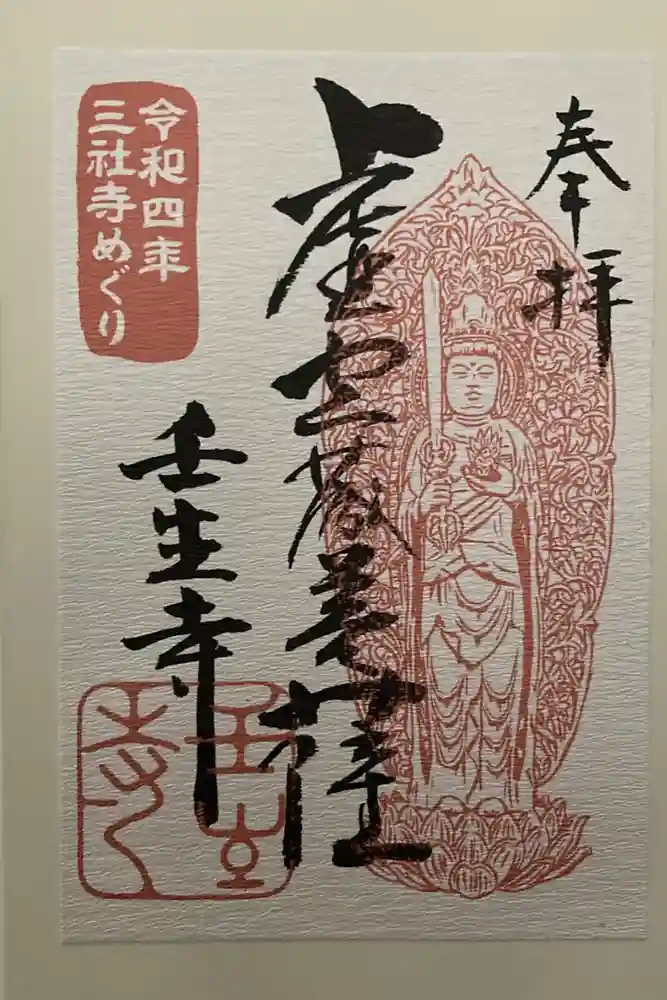 奉拝
虚空蔵菩薩
壬生寺
令和四年
三社寺めぐり